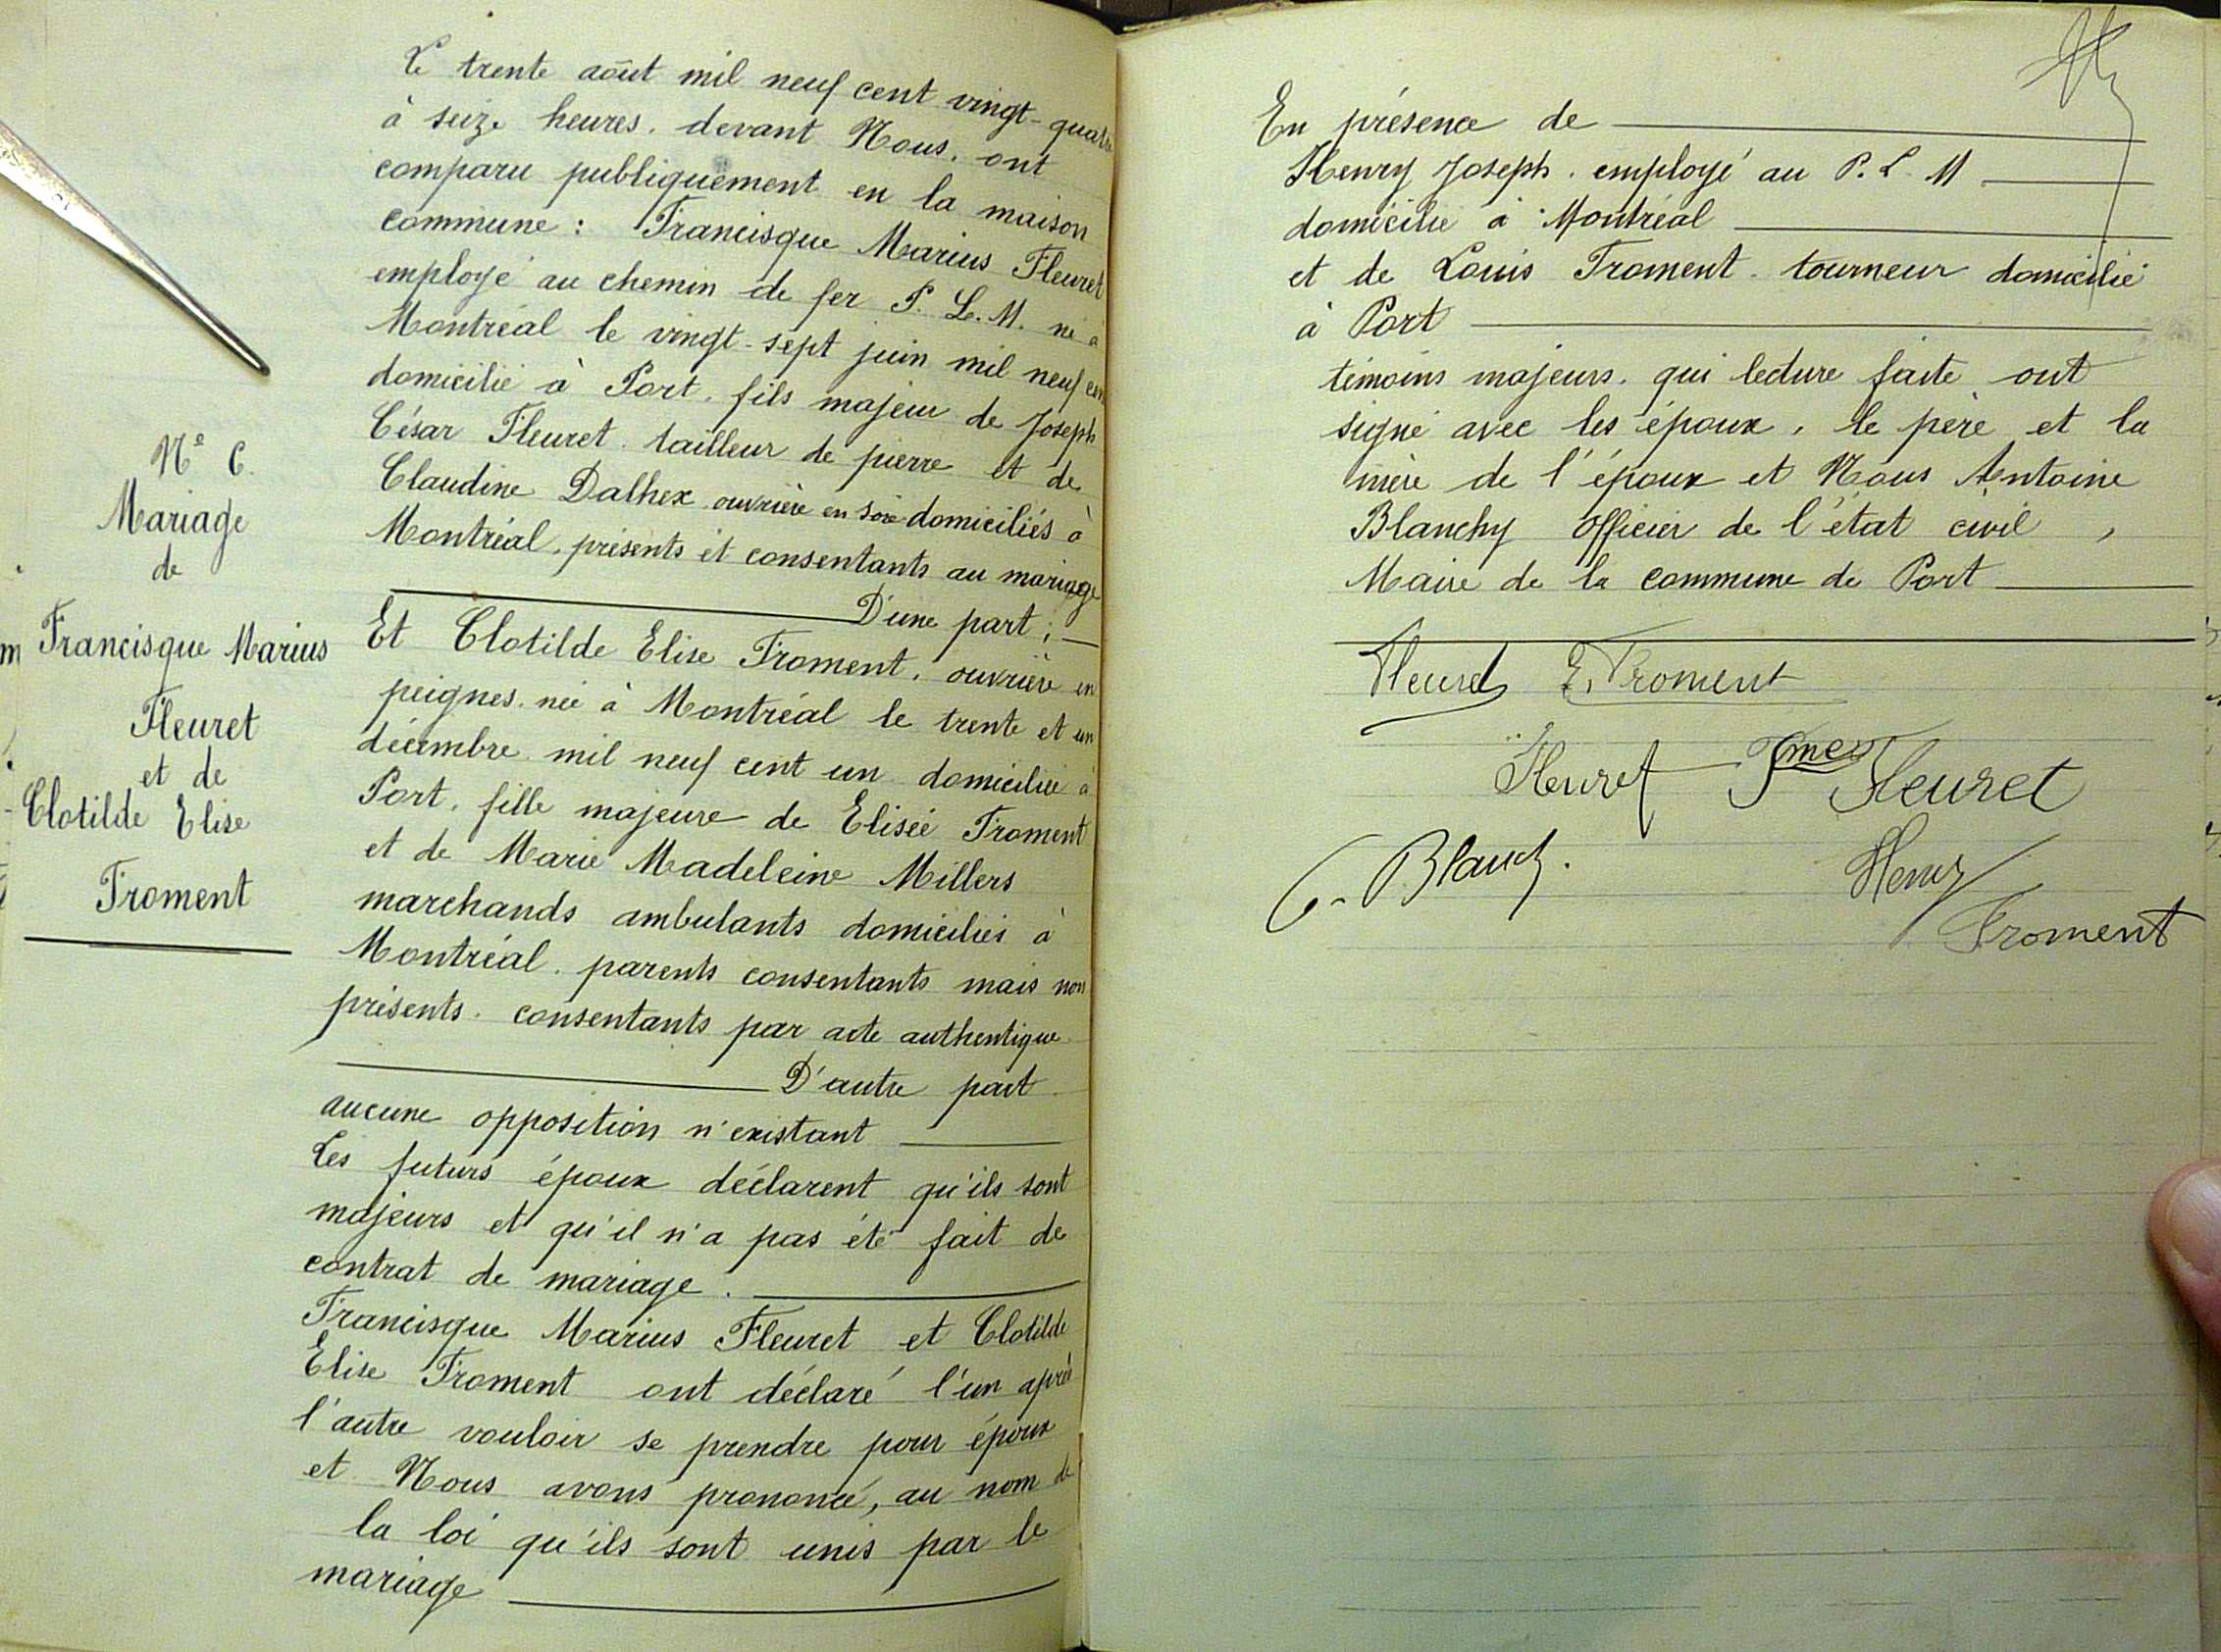 Le trente août mil neuf cent vingt-quatre
à seize heures. devant Nous. ont
comparu publiquement en la maison
commune : Francisque Marius Fleuret
employé au chemin de fer P. L. M. né à
Montréal le vingt-sept juin mil neuf cent
domicilié à Port. fils majeur de Joseph
César Fleuret tailleur de pierre et de
Claudine Dalhex ouvrière en soie domiciliés à
Montréal. présents et consentants au mariage
D'une part ;
Et Clotilde Elise Froment. ouvrière en
peignes. née à Montréal le trente et un
décembre mil neuf cent un domiciliée à
Port. fille majeure de Elisée Froment
et de Marie Madeleine Millers
marchands ambulants domiciliés à
Montréal. parents consentants mais non
présents. consentants par acte authentique
D'autre part
aucune opposition n'existant
Les futurs époux déclarent qu'ils sont
majeurs et qu'il n'a pas été fait de
contrat de mariage.
Francisque Marius Fleuret et Clotilde
Elise Froment ont déclaré l'un après
l'autre vouloir se prendre pour époux
et Nous avons prononcé, au nom de
la loi qu'ils sont unis par le
mariage
Nº 6.
Mariage
de
Francisque Marius
Fleuret
et de
Clotilde Elise
Froment
En présence de
Henry Joseph. employé au P. L. M
domicilié à Montréal
et de Louis Froment. tourneur domicilié
à Port
témoins majeurs. qui lecture faite ont
signé avec les époux, le père et la
mère de l'époux et Nous Antoine
Blanchy officier de l'état civil,
Maire de la commune de Port
Fleuret E. Froment
Fleuret Fleuret
Blanchy.
Henry
Froment